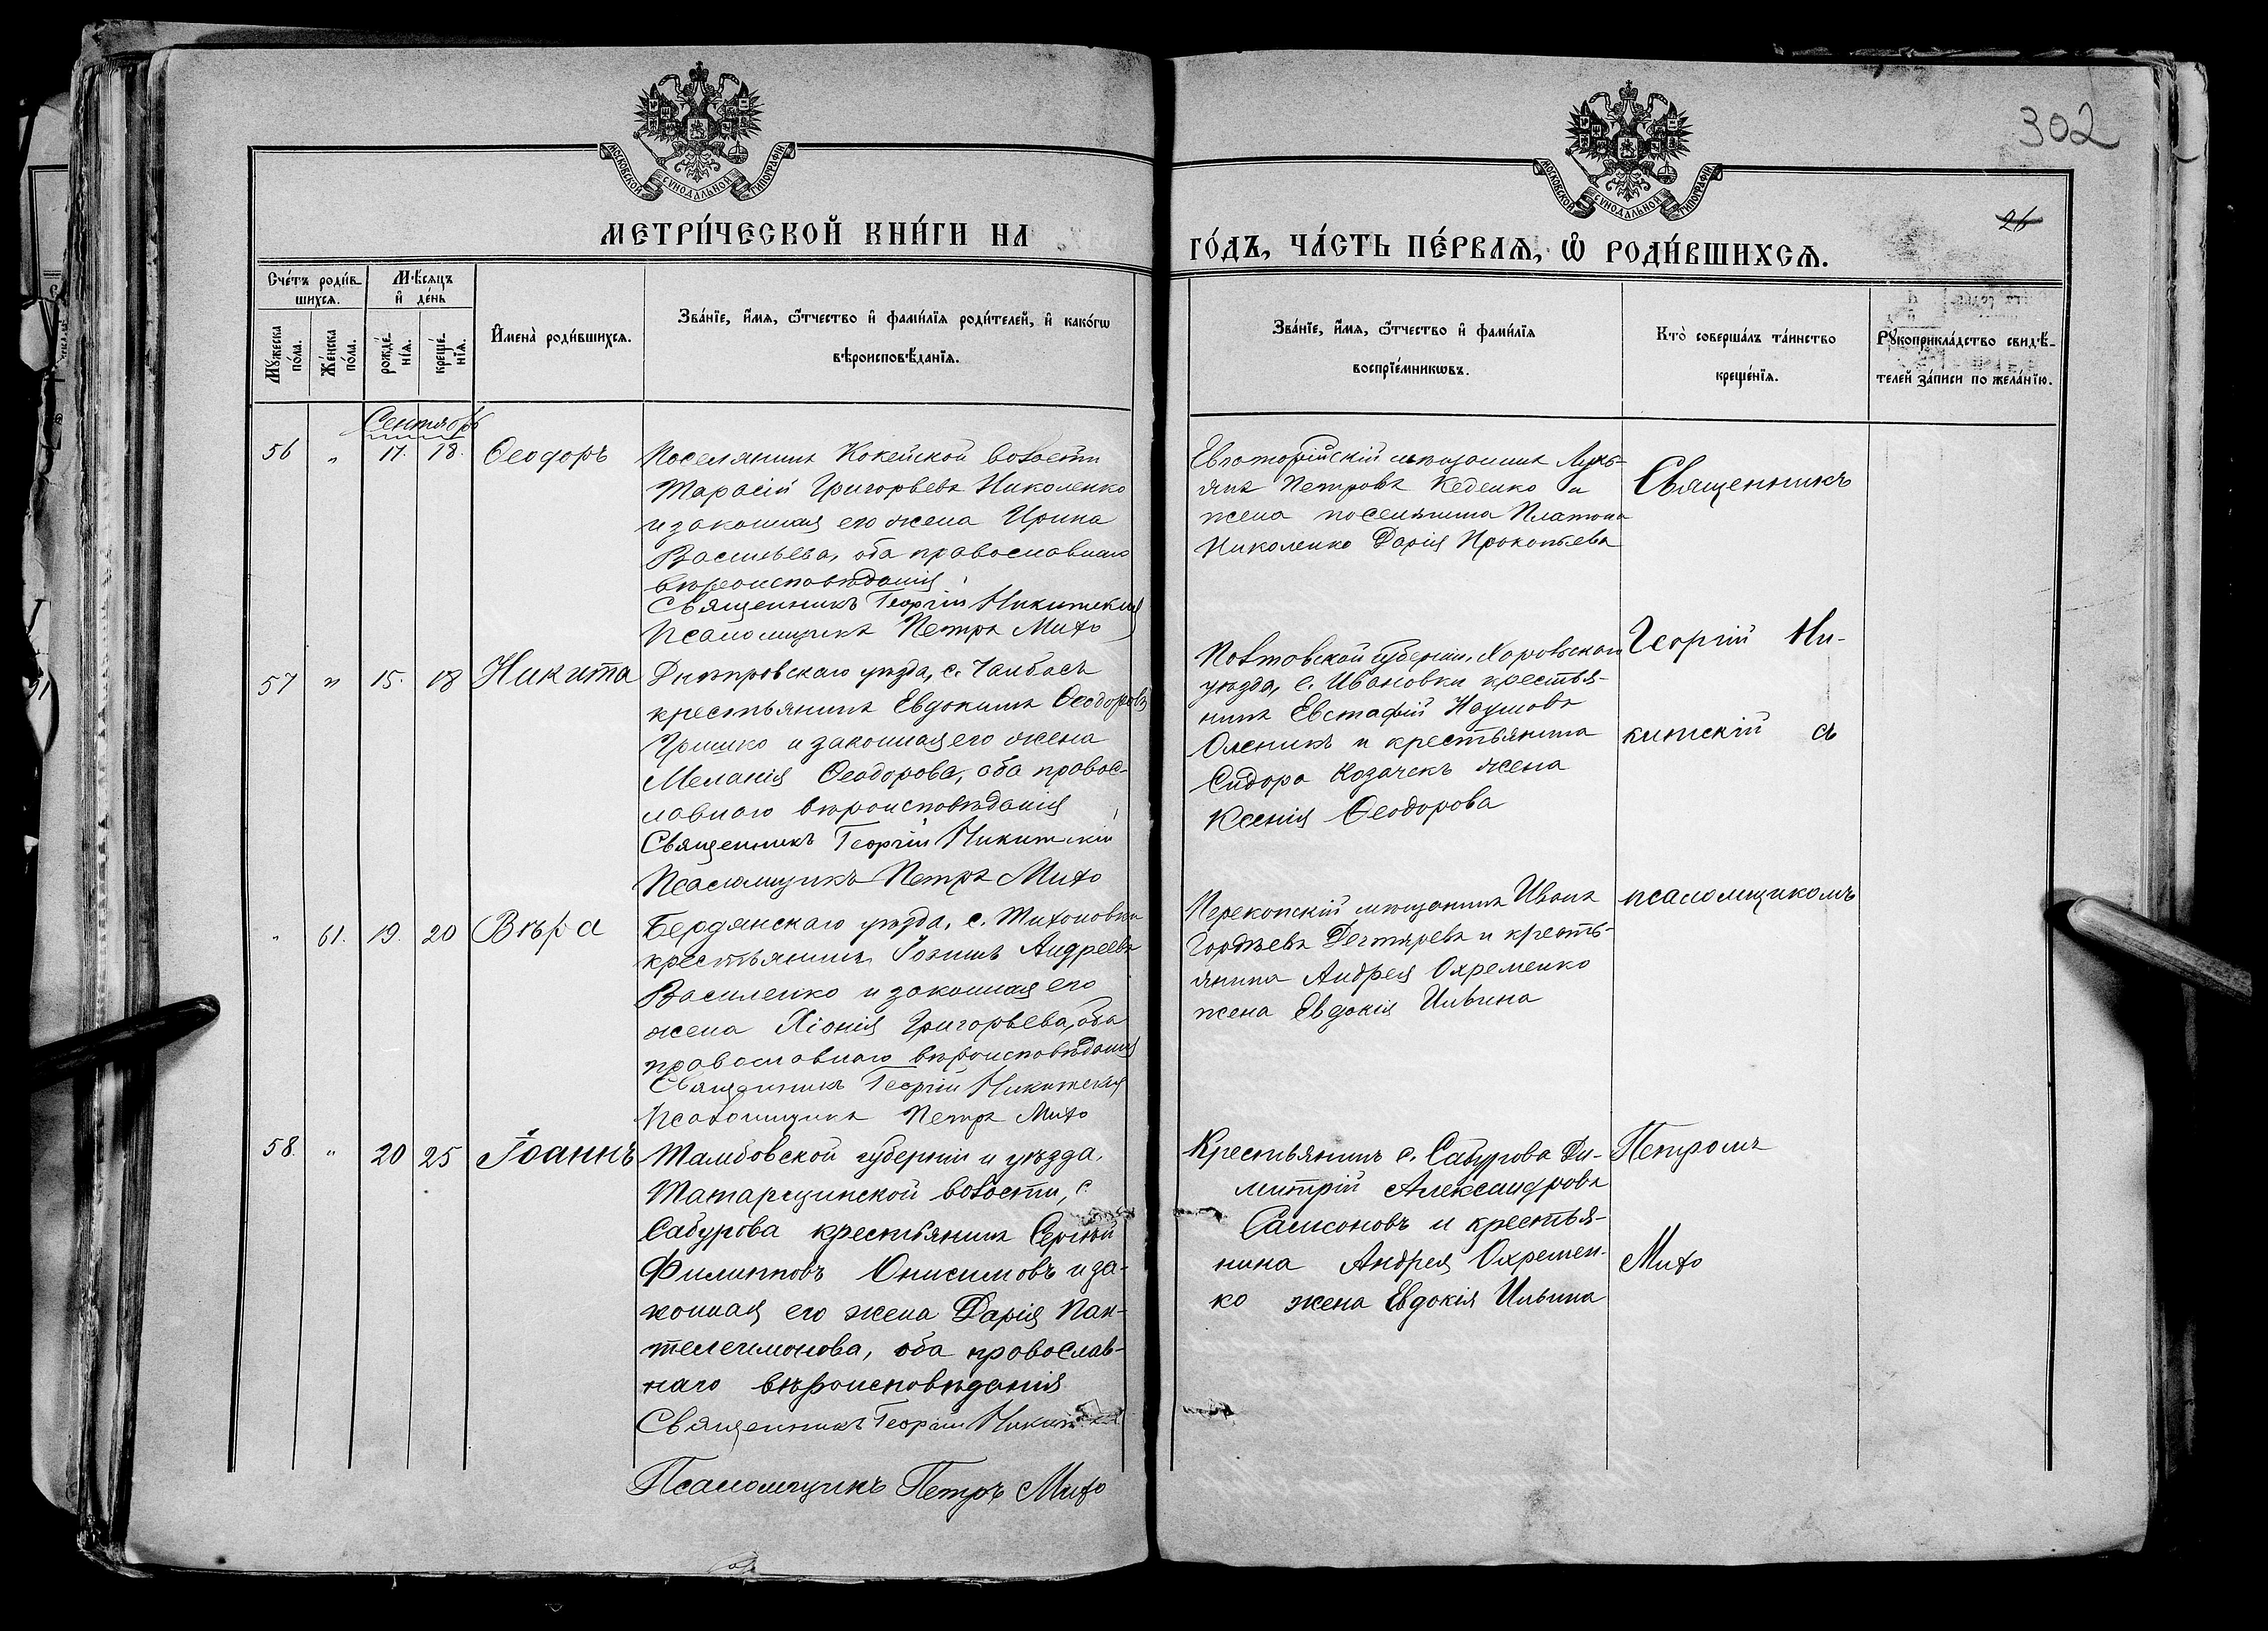 302
МОСКОВСКОЙ СѴНОДАЛЬНОЙ ТИПОГРАФІИ
МОСКОВСКОЙ СѴНОДАЛЬНОЙ ТИПОГРАФІИ
26
МЕТРИ́ЧЕСКОЙ КНИ́ГИ НА
ГО́ДЪ, ЧА́СТЬ ПЕ́РВАЯ, Ѡ РОДИ́ВШИХСЯ.
Сче́тъ роди́в-
шихся.
Му́жеска
по́ла.
Же́нска
по́ла.
Мѣ́сяцъ
и҆ де́нь
рожде́-
нїя.
креще́-
нїя.
И҆мена̀ роди́вшихся.
Зва́нїе, и҆́мя, ѻ҆́тчество и҆ фами́лїя роди́телей, и҆ како́гѡ
вѣроисповѣ́данїя.
Зва́нїе, и҆́мя, ѻ҆́тчество и҆ фами́лїя
воспрїе́мникωвъ.
Кто̀ соверша́лъ та́инство
креще́нїя.
Рꙋкоприкла́дство свидѣ́-
телей за́писи по жела́нїю.
Сентябрь
56 " 17. 18. Ѳеодоръ
Поселянинъ Кокейской волости
Тарасій Григорьевъ Николенко
и законная его жена Ирина
Васильева, оба православнаго
вѣроисповѣданія
Священникъ Георгій Никитскій
Псаломщикъ Петръ Михо
Евпаторійскій мѣщанинъ Лукь-
янъ Петровъ Кеденко и
жена поселянина Платона
Николенко Дарія Прокопьева
57 " 15. 18 Никита
Днѣпровскаго уѣзда, с. Чалбасъ
крестьянинъ Евдокимъ Ѳеодоровъ
Гришко и законная его жена
Меланія Ѳеодорова, оба правос-
лавнаго вѣроисповѣданія
Священникъ Георгій Никитскій
Псаломщикъ Петръ Михо
Полтовской губерніи, Хоровскаго
уѣзда, с. Ивановки крестья-
нинъ Евстафій Наумовъ
Оленикъ и крестьянина
Сидора Козачекъ жена
Ксенія Ѳеодорова
" 61. 19. 20 Вѣра
Бердянскаго уѣзда, с. Тихоновки
крестьянинъ Іоаннъ Андреевъ
Василенко и законная его
жена Хіонія Григорьева, оба
православнаго вѣроисповѣданія
Священникъ Георгій Никитскій
Псаломщикъ Петръ Михо
Перекопскій мѣщанинъ Иванъ
Гордѣевъ Дегтяревъ и кресть-
янина Андрея Охременко
жена Евдокія Ильина
58. " 20 25 Іоаннъ
Тамбовской губерніи и уѣзда,
Татарщинской волости, с.
Сабурова крестьянинъ Сергѣй
Филипповъ Онисимовъ и за-
конная его жена Дарія Пан-
телеимонова, оба православ-
наго вѣроисповѣданія
Священникъ Георгій
Псаломщикъ Петръ Михо
Крестьянинъ с. Сабурова Ди-
митрій Александровъ
Самсоновъ и крестья-
нина Андрея Охремен-
ко жена Евдокія Ильина
Священникъ
Георгій Ни-
китскій съ
псаломщикомъ
Петромъ
Михо